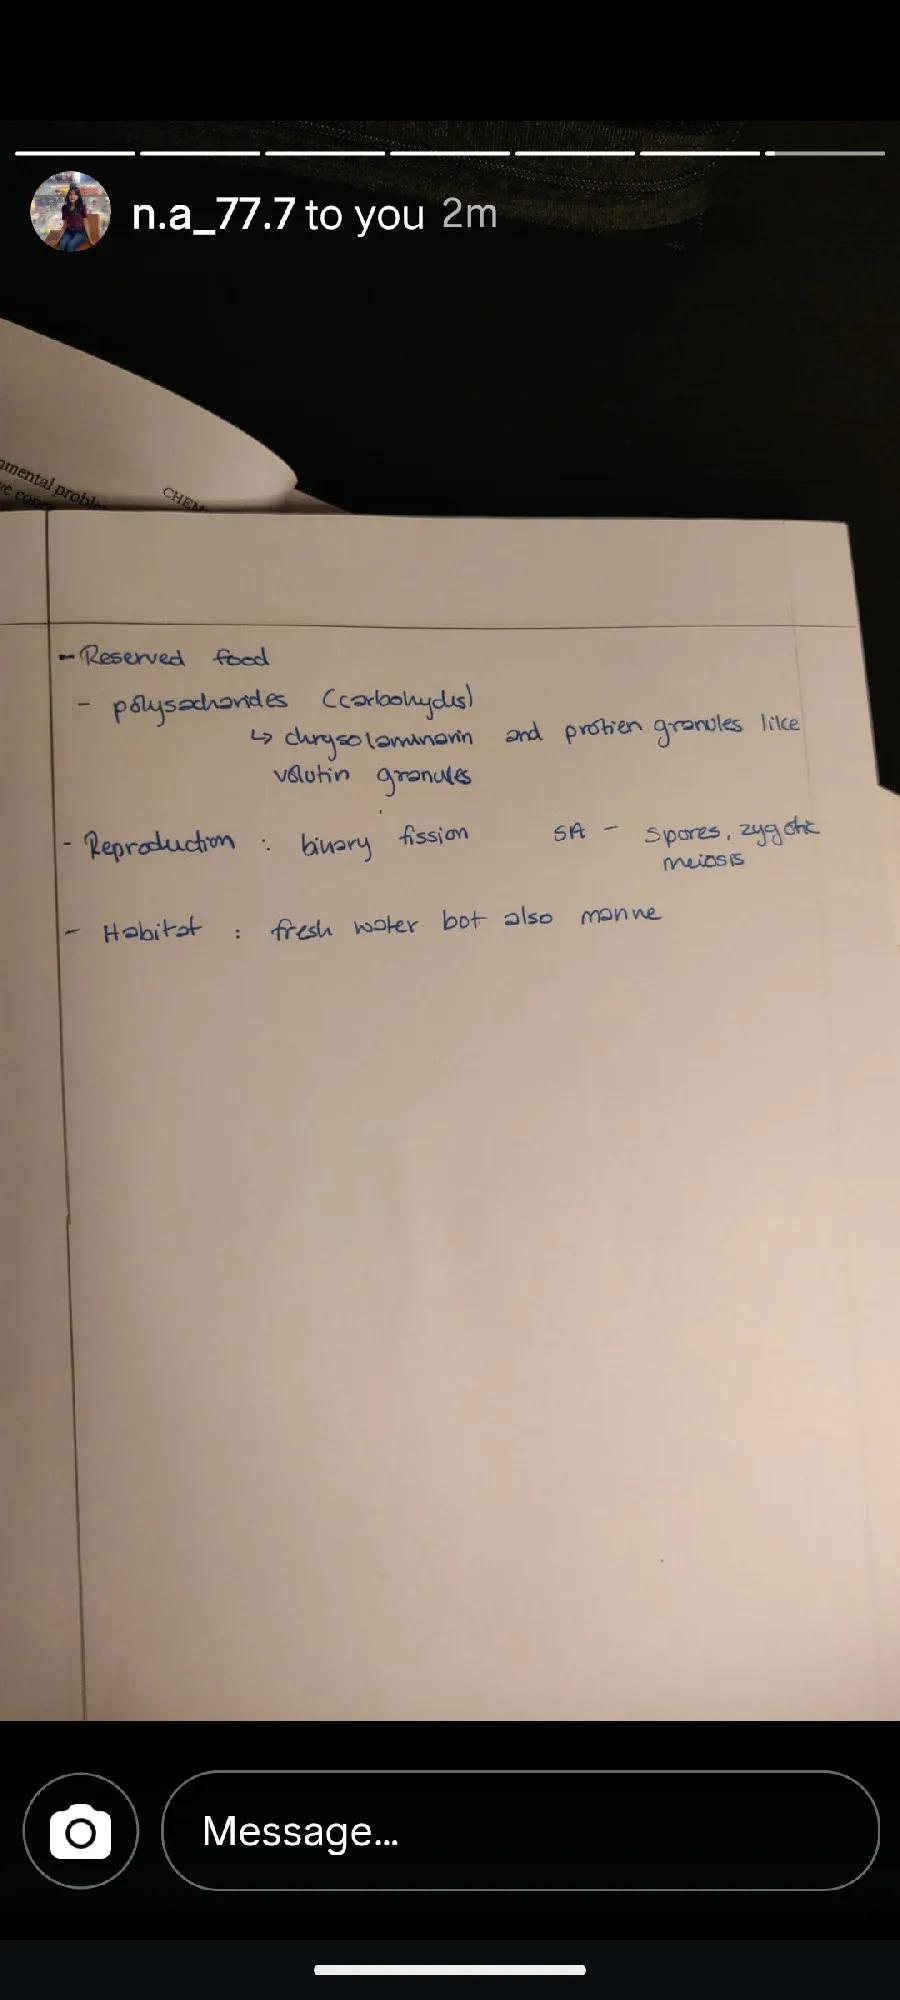 n.a_77.7 to you 2m
nmental proble
ve con
CHEM
- Reserved food
- polysacharides (carbohyds)
↳ chrysolaminarin and protien granules like
volutin granules
- Reproduction : binary fission SA - spores, zygotic
meiosis
- Habitat : fresh water bot also marine
Message...